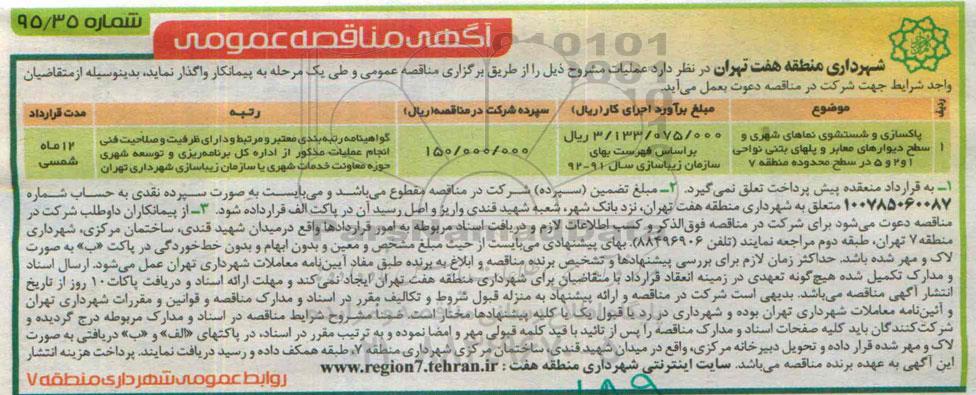 شماره ۹۵/۳۵
آگهی مناقصه عمومی
شهرداری منطقه هفت تهران در نظر دارد عملیات مشروح ذیل را از طریق برگزاری مناقصه عمومی و طی یک مرحله به پیمانکار واگذار نماید، بدینوسیله از متقاضیان
واجد شرایط جهت شرکت در مناقصه دعوت بعمل می‌آید.
ردیف موضوع مبلغ برآورد اجرای کار (ریال) سپرده شرکت در مناقصه (ریال) رتبه مدت قرارداد
۱ پاکسازی و شستشوی نماهای شهری و سطح دیوارهای معابر و پلهای بتنی نواحی ۱ و ۲ و ۵ در سطح محدوده منطقه ۷ ۳/۱۳۳/۰۷۵/۰۰۰ ریال براساس فهرست بهای سازمان زیباسازی سال ۹۱-۹۲ ۱۵۰/۰۰۰/۰۰۰ گواهینامه رتبه‌بندی معتبر و مرتبط و دارای ظرفیت و صلاحیت فنی انجام عملیات مذکور از اداره کل برنامه‌ریزی و توسعه شهری حوزه معاونت خدمات شهری یا سازمان زیباسازی شهرداری تهران ۱۲ ماه شمسی
۱- به قرارداد منعقده پیش پرداخت تعلق نمی‌گیرد. ۲- مبلغ تضمین (سپرده) شرکت در مناقصه مقطوع می‌باشد و می‌بایست به صورت سپرده نقدی به حساب شماره
۱۰۰۷۸۵۰۶۰۰۸۷ متعلق به شهرداری منطقه هفت تهران، نزد بانک شهر، شعبه شهید قندی واریز و اصل رسید آن در پاکت الف قرارداده شود. ۳- از پیمانکاران داوطلب شرکت در
مناقصه دعوت می‌شود برای شرکت در مناقصه فوق‌الذکر و کسب اطلاعات لازم و دریافت اسناد مربوطه به امور قراردادها واقع درمیدان شهید قندی، ساختمان مرکزی، شهرداری
منطقه ۷ تهران، طبقه دوم مراجعه نمایند (تلفن ۸۸۴۹۶۹۰۶). بهای پیشنهادی می‌بایست از حیث مبلغ مشخص و معین و بدون ابهام و بدون خط‌خوردگی در پاکت «ب» به صورت
لاک و مهر شده باشد. حداکثر زمان لازم برای بررسی پیشنهادها و تشخیص برنده مناقصه و ابلاغ به برنده طبق مفاد آیین‌نامه معاملات شهرداری تهران عمل می‌شود. ارسال اسناد
و مدارک تکمیل شده هیچ‌گونه تعهدی در زمینه انعقاد قرارداد با متقاضیان برای شهرداری منطقه هفت تهران ایجاد نمی‌کند و مهلت ارائه اسناد و دریافت پاکات ۱۰ روز از تاریخ
انتشار آگهی مناقصه می‌باشد. بدیهی است شرکت در مناقصه و ارائه پیشنهاد به منزله قبول شروط و تکالیف مقرر در اسناد و مدارک مناقصه و قوانین و مقررات شهرداری تهران
و آئین‌نامه معاملات شهرداری تهران بوده و شهرداری در رد یا قبول یک یا کلیه پیشنهادها مختار است. ضمناً مشروح شرایط مناقصه در اسناد و مدارک مربوطه درج گردیده و
شرکت‌کنندگان باید کلیه صفحات اسناد و مدارک مناقصه را پس از تائید با قید کلمه قبولی مهر و امضا نموده و به ترتیب مقرر در اسناد، در پاکتهای «الف» و «ب» دریافتی به صورت
لاک و مهر شده قرار داده و تحویل دبیرخانه مرکزی، واقع در میدان شهید قندی، ساختمان مرکزی شهرداری منطقه ۷، طبقه همکف داده و رسید دریافت نمایند. پرداخت هزینه انتشار
این آگهی به عهده برنده مناقصه می‌باشد. سایت اینترنتی شهرداری منطقه هفت : www.region7.tehran.ir
روابط عمومی شهرداری منطقه ۷